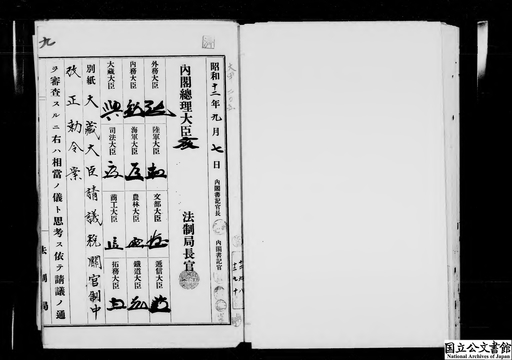 昭和十二年九月七日
内閣書記官長
内閣書記官
内閣總理大臣
法制局長官
外務大臣
陸軍大臣
文部大臣
遞信大臣
内務大臣
海軍大臣
農林大臣
鐵道大臣
大藏大臣
司法大臣
商工大臣
拓務大臣
別紙大藏大臣請議税關官制中
改正勅令案
ヲ審査スルニ右ハ相當ノ儀ト思考ス依テ請議ノ通
法制局
九
国立公文書館
National Archives of Japan